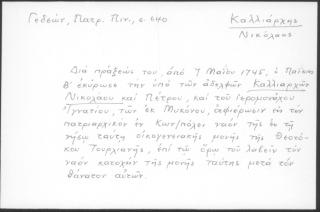 Γεδεών, Πατρ. Πιν., σ. 640
Καλλιάρχης
Νικόλαος
Διά πράξεώς του, ἀπό 7 Μαΐου 1745, ὁ Παΐσιος
Β' ἐκύρωσε τήν ὑπό τῶν ἀδελφῶν Καλλιαρχῶν
Νικολάου καί Πέτρου, καί τοῦ Ἱερομονάχου
Ἰγνατίου, τῶν ἐκ Μυκόνου, ἀφιέρωσιν εἰς τόν
πατριαρχικόν ἐν Κων/πόλει ναόν τῆς ἐν τῇ
νήσῳ ταύτῃ οἰκογενειακῆς μονῆς τῆς Θεοτό-
κου Τουρλιανῆς, ἐπί τῷ ὅρῳ τοῦ λαβεῖν τόν
ναόν κατοχήν τῆς μονῆς ταύτης μετά τόν
θάνατον αὐτῶν.